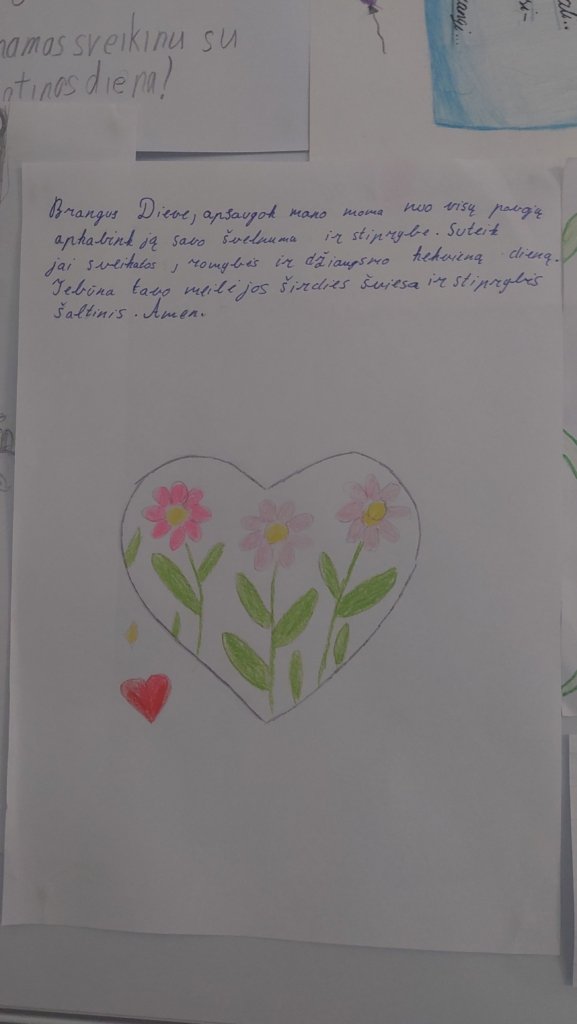 amos sveikinu su
ntinos diena!
Brangus Dieve, apsaugok mano mama nuo visų pavojų
apkabink ją savo švelnuma ir stiprybe. Suteik
jai sveikatos, romybės ir džiaugsmo kekvieną dieną.
Tebūna tavo meilė jos širdies šviesa ir stiprybės
šaltinis. Amen.